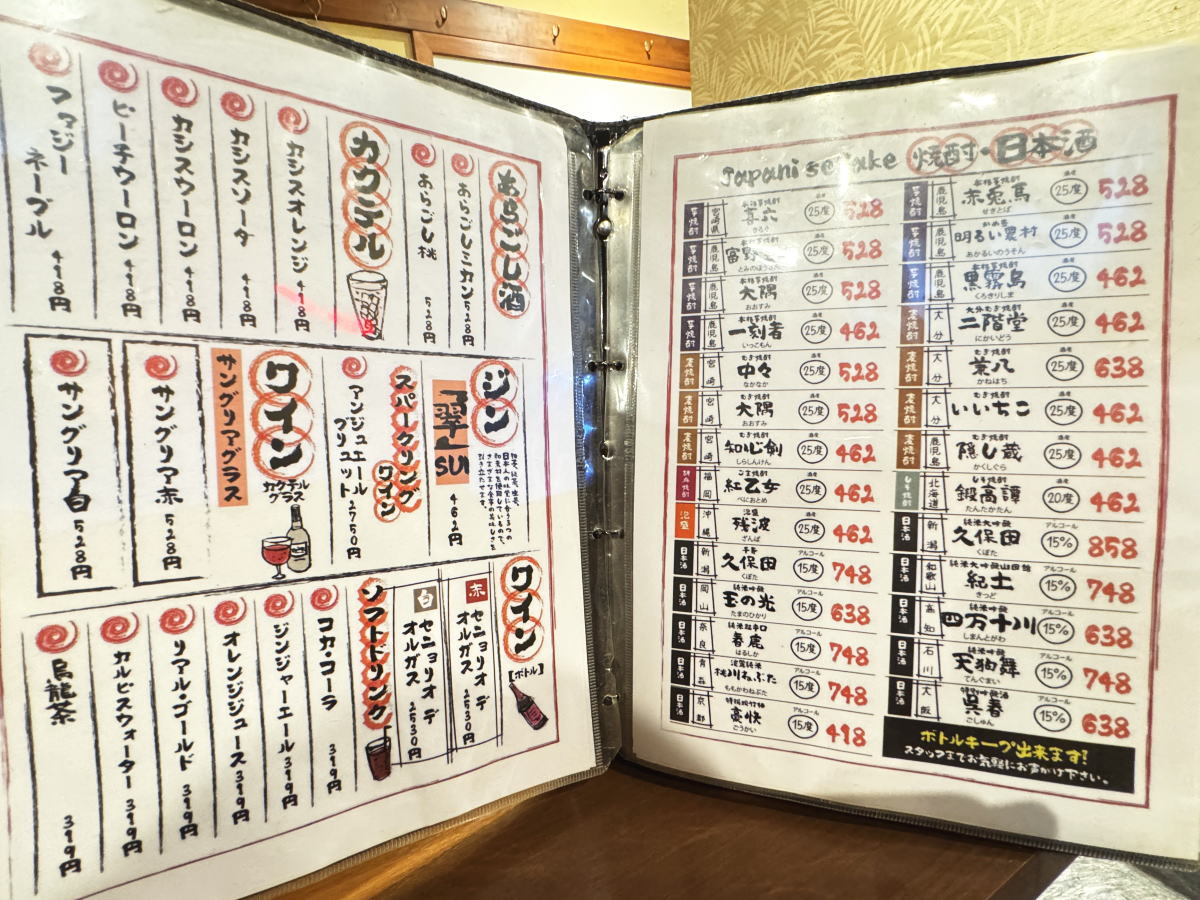 あらごし酒
あらごしミカン 528円
あらごし桃 528円
カクテル
カシスオレンジ 418円
カシスソーダ 418円
カシスウーロン 418円
ピーチウーロン 418円
ファジー
ネーブル 418円
ジン
翠
SUI
462円
スパークリング
ワイン
アンジュエール
ブリュット 2750円
ワイン
カクテル
グラス
サングリアグラス
サングリア赤 528円
サングリア白 528円
ワイン
【ボトル】
赤 セニョリオ デ
オルガス 2530円
白 セニョリオ デ
オルガス 2530円
ソフトドリンク
コカ・コーラ 319円
ジンジャーエール 319円
オレンジジュース 319円
リアル・ゴールド 319円
カルピスウォーター 319円
烏龍茶 319円
焼酎・日本酒
芋焼酎 鹿児島 本格芋焼酎 赤兎馬 せきとば 酒度 25度 528
芋焼酎 鹿児島 かめ壺 明るい農村 あかるいのうそん 酒度 25度 528
芋焼酎 鹿児島 本格芋焼酎 黒霧島 くろきりしま 酒度 25度 462
麦焼酎 大分 大分むぎ焼酎 二階堂 にかいどう 酒度 25度 462
麦焼酎 大分 むぎ焼酎 兼八 かねはち 酒度 25度 638
麦焼酎 大分 むぎ焼酎 いいちこ 酒度 25度 462
麦焼酎 鹿児島 むぎ焼酎 隠し蔵 かくしぐら 酒度 25度 462
しそ焼酎 北海道 しそ焼酎 鍛高譚 たんたかたん 酒度 20度 462
日本酒 新潟 純米大吟醸 久保田 くぼた アルコール 15% 858
日本酒 和歌山 純米大吟醸山田錦 紀土 きっど アルコール 15% 748
日本酒 高知 純米吟醸 四万十川 しまんとがわ アルコール 15% 638
日本酒 石川 純米吟醸 天狗舞 てんぐまい アルコール 15% 748
日本酒 大阪 特別吟醸酒 呉春 ごしゅん アルコール 15% 638
芋焼酎 宮崎県 本格芋焼酎 喜六 きろく 酒度 25度 528
芋焼酎 鹿児島 25度 528
芋焼酎 鹿児島 本格芋焼酎 大隅 おおすみ 酒度 25度 528
芋焼酎 鹿児島 本格芋焼酎 一刻者 いっこもん 酒度 25度 462
麦焼酎 宮崎 むぎ焼酎 中々 なかなか 酒度 25度 528
麦焼酎 宮崎 むぎ焼酎 大隅 おおすみ 酒度 25度 528
麦焼酎 宮崎 むぎ焼酎 知心剣 しらしんけん 酒度 25度 462
胡麻焼酎 福岡 ごま焼酎 紅乙女 べにおとめ 酒度 25度 462
泡盛 沖縄 泡盛 残波 ざんぱ 酒度 25度 462
日本酒 新潟 千寿 久保田 くぼた アルコール 15度 748
日本酒 岡山 純米吟醸 玉の光 たまのひかり アルコール 15度 638
日本酒 奈良 純米超辛口 春鹿 はるしか アルコール 15度 748
日本酒 青森 桃川ねぶた ももかわねぶた アルコール 15度 748
日本酒 京都 豪快 ごうかい アルコール 15度 418
ボトルキープ出来ます!
スタッフまでお気軽にお声がけ下さい。